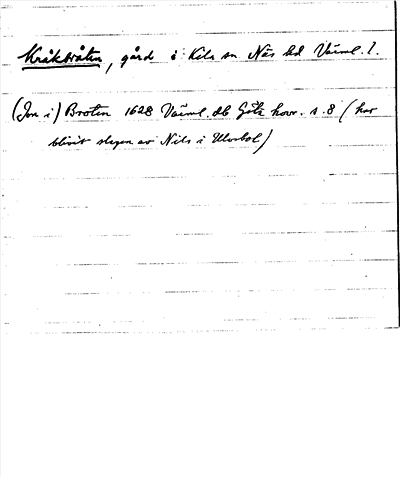 Kråkbråten, gård i Kila sn Näs hd Värml. l.
(Jon i) Broten 1628 Värml. db Göta hovr. s. 8 (har
blivit slagen av Nils i Ulvsbol)